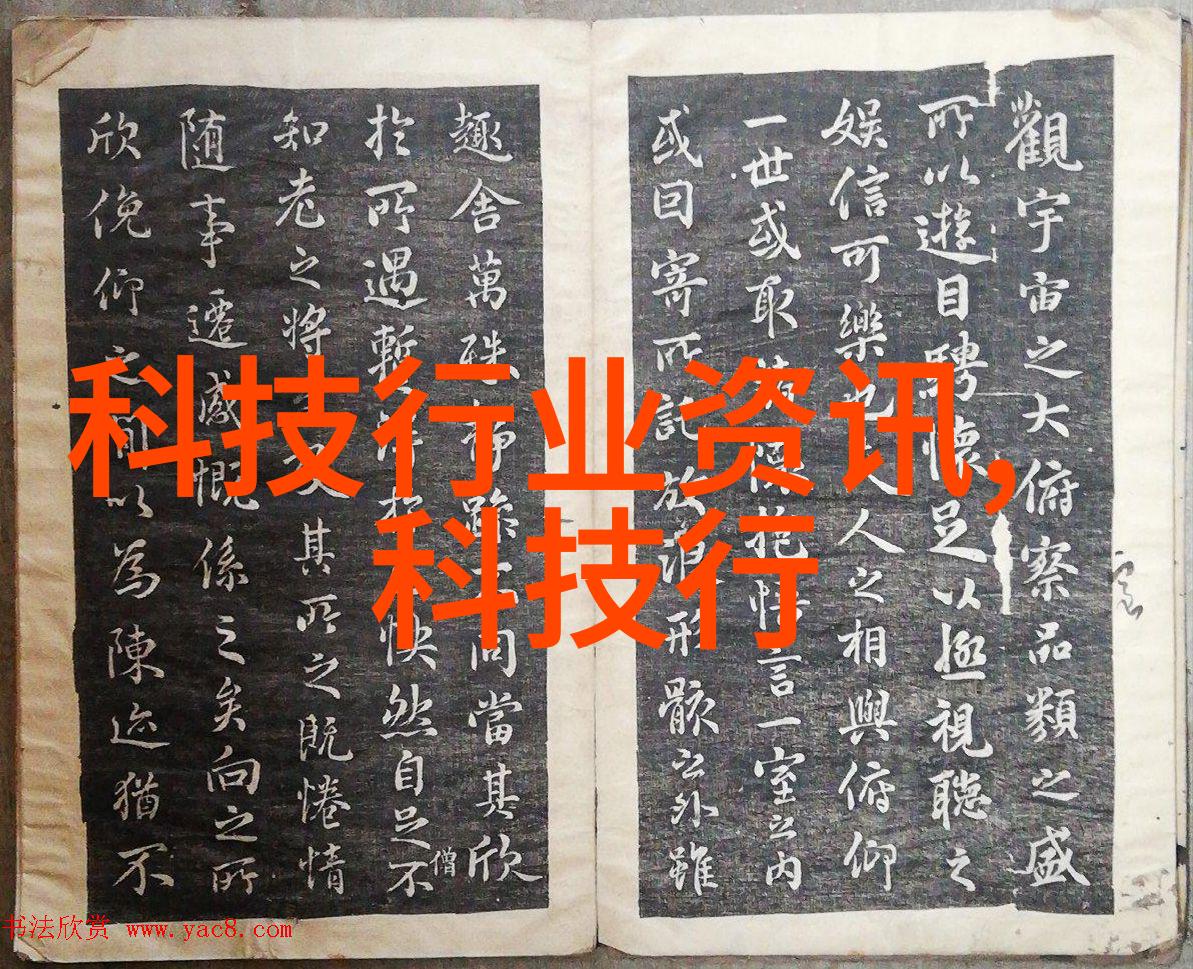 科技行业资讯,
科技行
觀宇宙之大俯察品類之盛
所以遊目騁懷足以極視聽之
娛信可樂也人之相與俯仰
一世或取抱悟言一室之內
或因寄所託放浪形骸之外雖
趣舍萬殊靜躁同當其欣
於所遇暫快然自足不
僧
知老之將其所之既惓情
随事遷感慨係之矣向之所
欣俛仰之間以為陳迹猶不
书法欣赏 www.yac8.com